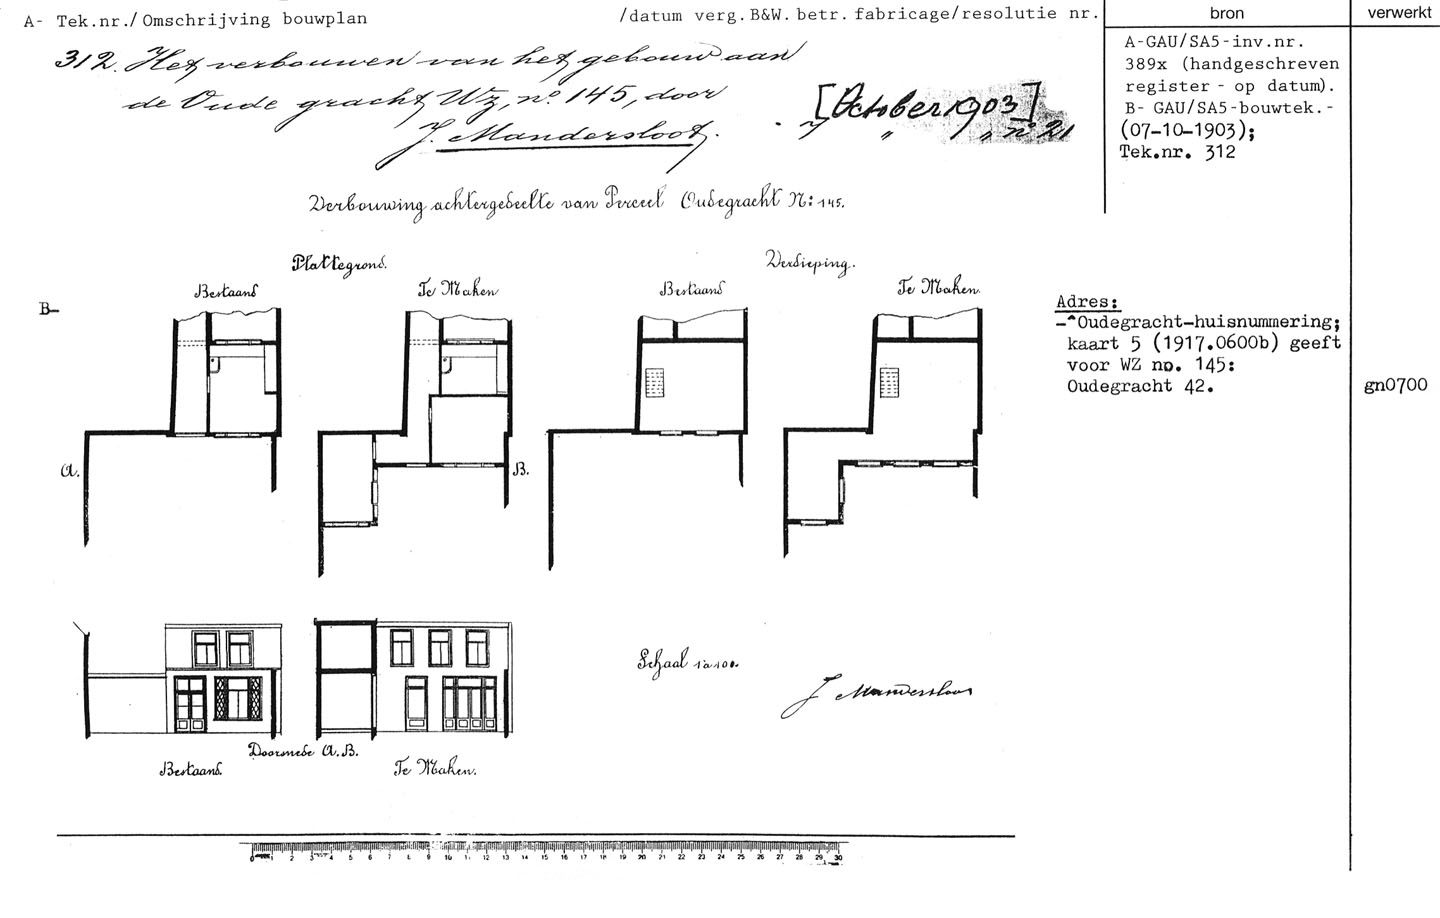 A- Tek.nr./Omschrijving bouwplan /datum verg.B&W. betr. fabricage/resolutie nr.
bron
verwerkt
312. Het verbouwen van het gebouw aan
de Oude gracht Wz, no. 145, door
J. Mandersloot.
[October 1903]
" " no 21
A-GAU/SA5-inv.nr.
389x (handgeschreven
register - op datum).
B- GAU/SA5-bouwtek.-
(07-10-1903);
Tek.nr. 312
Verbouwing achtergedeelte van Perceel Oudegracht N: 145.
Plattegrond.
Verdieping.
Bestaand
Te Maken
Bestaand
Te Maken.
B-
A.
B.
Adres:
-^Oudegracht-huisnummering;
kaart 5 (1917.0600b) geeft
voor WZ no. 145:
Oudegracht 42.
gn0700
Schaal 1 à 100.
J Mandersloot
Doorsnede A.B.
Bestaand.
Te Maken.
0 1 2 3 4 5 6 7 8 9 10 11 12 13 14 15 16 17 18 19 20 21 22 23 24 25 26 27 28 29 30